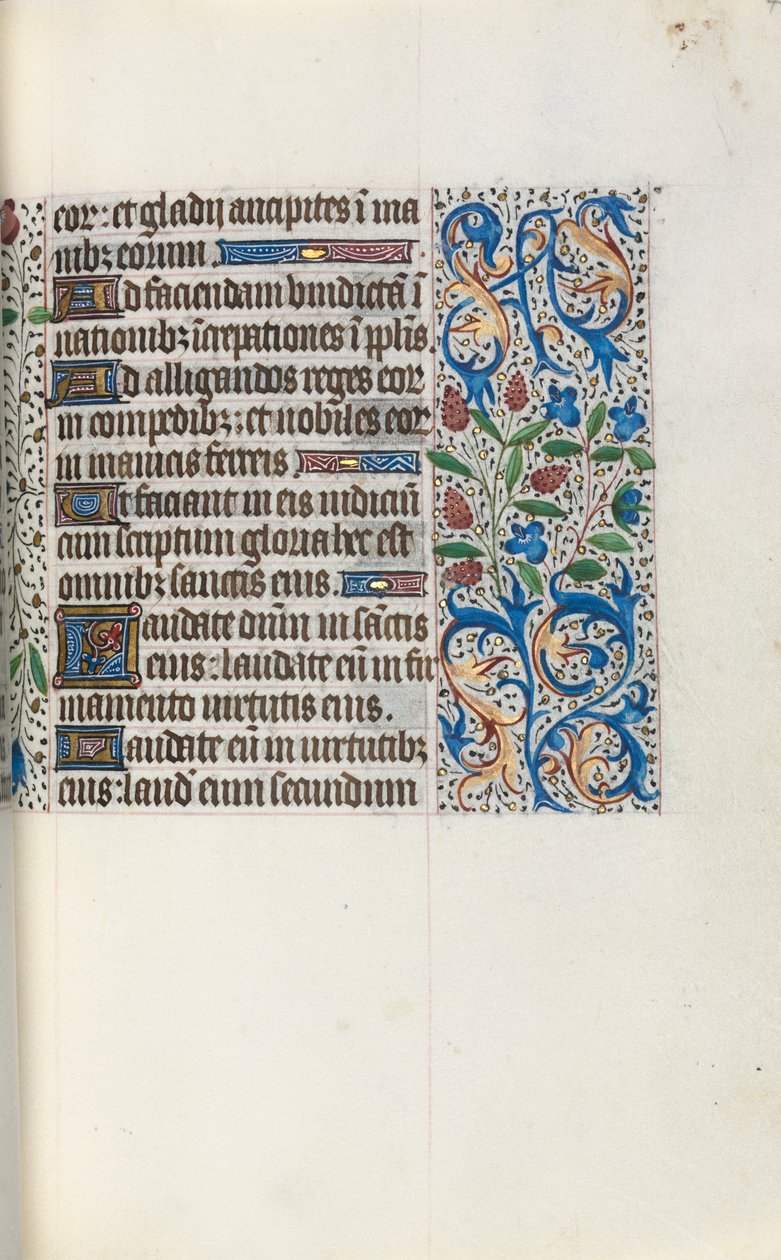 eoꝝ: et gladij ancipites ī ma
nibꝫ eorum.
Ad faciendam vindictā ī
nationibꝫ īcrepationes ī pplīs.
Ad alligandos reges eoꝝ
in compedibꝫ: et nobiles eoꝝ
in manicis ferreis.
Ut faciant in eis iudiciū
cum scriptum gloria hec est
omnibꝫ sanctis eius.
Laudate dnm̄ in sāctis
eius: laudate eū in fir
mamento uirtutis eius.
Laudate eū in uirtutibꝫ
eius: laud eum secundum